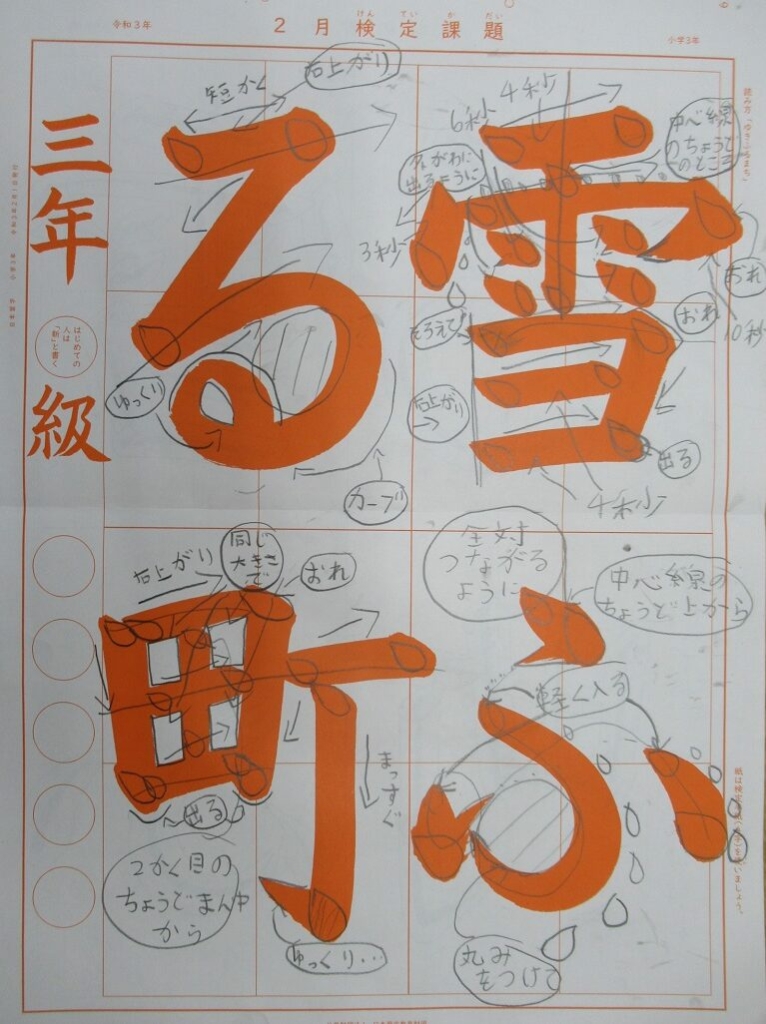 令和3年
2月検定課題
けんていかだい
小学3年
読み方「ゆきふるまち」
雪ふ
る町
三年
はじめての
人は
「新」と書く
級
短かく
右上がり
4秒
6秒
中心線
のちょうど
のところ
出るように
3秒
おれ
10秒
おれ
そろえて
右上がり
出る
4秒
ゆっくり
カーブ
右上がり
同じ
大きさ
で
おれ
全対
つながる
ように
中心線の
ちょうど上から
軽く入る
まっすぐ
出る
2かく目の
ちょうどまん中
から
ゆっくり・・
丸み
をつけて